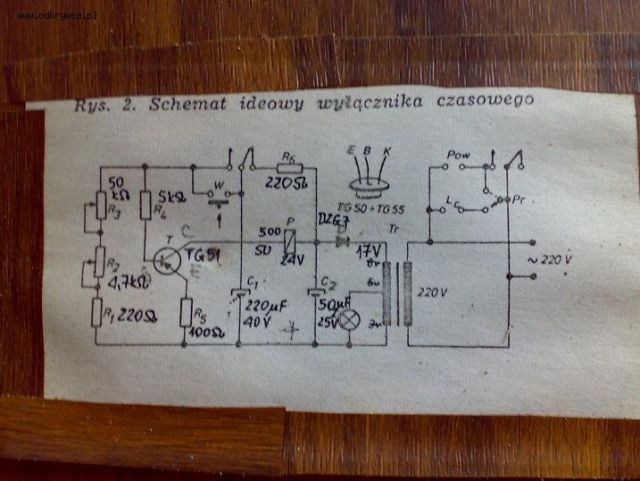 www.odkrywca.pl
Rys. 2. Schemat ideowy wyłącznika czasowego
50 kΩ
R3
5kΩ
R4
W
R6
220Ω
E B K
TG50÷TG55
Pow
Lc
Pr
~220V
T
C
TG51
E
R2
4,7kΩ
R1 220Ω
R5
100Ω
500
P
24V
C1
220µF
40V
C2
50µF
25V
DZG7
Tr
17V
220V